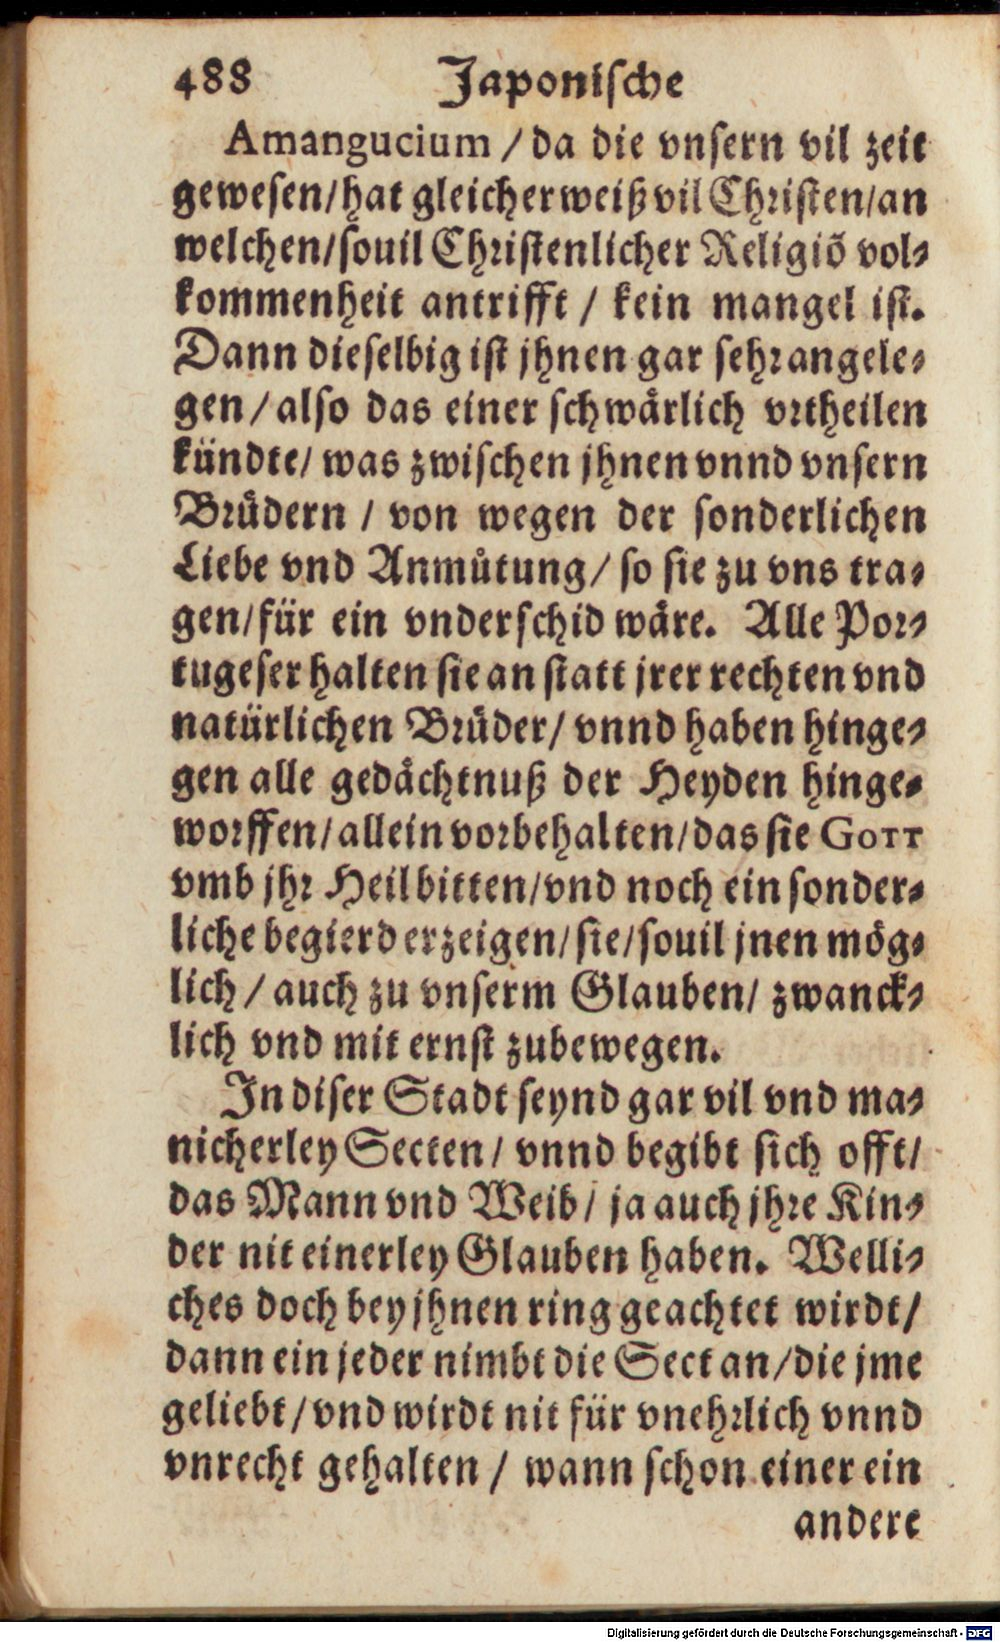 488 Japonische
Amangucium / da die vnsern vil zeit
gewesen/hat gleicherweiß vil Christen/an
welchen/souil Christenlicher Religiõ vol-
kommenheit antrifft / kein mangel ist.
Dann dieselbig ist jhnen gar sehr angele-
gen/also das einer schwårlich vrtheilen
kündte/ was zwischen jhnen vnnd vnsern
Brůdern / von wegen der sonderlichen
Liebe vnd Anmůtung/so sie zu vns tra-
gen/für ein vnderschid wåre. Alle Por-
tugeser halten sie an statt jrer rechten vnd
natürlichen Brůder/ vnnd haben hinge-
gen alle gedåchtnuß der Heyden hinge-
worffen/allein vorbehalten/das sie GOTT
vmb jhr Heil bitten/vnd noch ein sonder-
liche begierd erzeigen/sie/souil jnen mög-
lich / auch zu vnserm Glauben/ zwanck-
lich vnd mit ernst zubewegen.
In diser Stadt seynd gar vil vnd ma-
nicherley Secten/ vnnd begibt sich offt/
das Mann vnd Weib/ ja auch jhre Kin-
der nit einerley Glauben haben. Welli-
ches doch bey jhnen ring geachtet wirdt/
dann ein jeder nimbt die Sect an/die jme
geliebt/vnd wirdt nit für vnehrlich vnnd
vnrecht gehalten / wann schon einer ein
andere
Digitalisierung gefördert durch die Deutsche Forschungsgemeinschaft - DFG